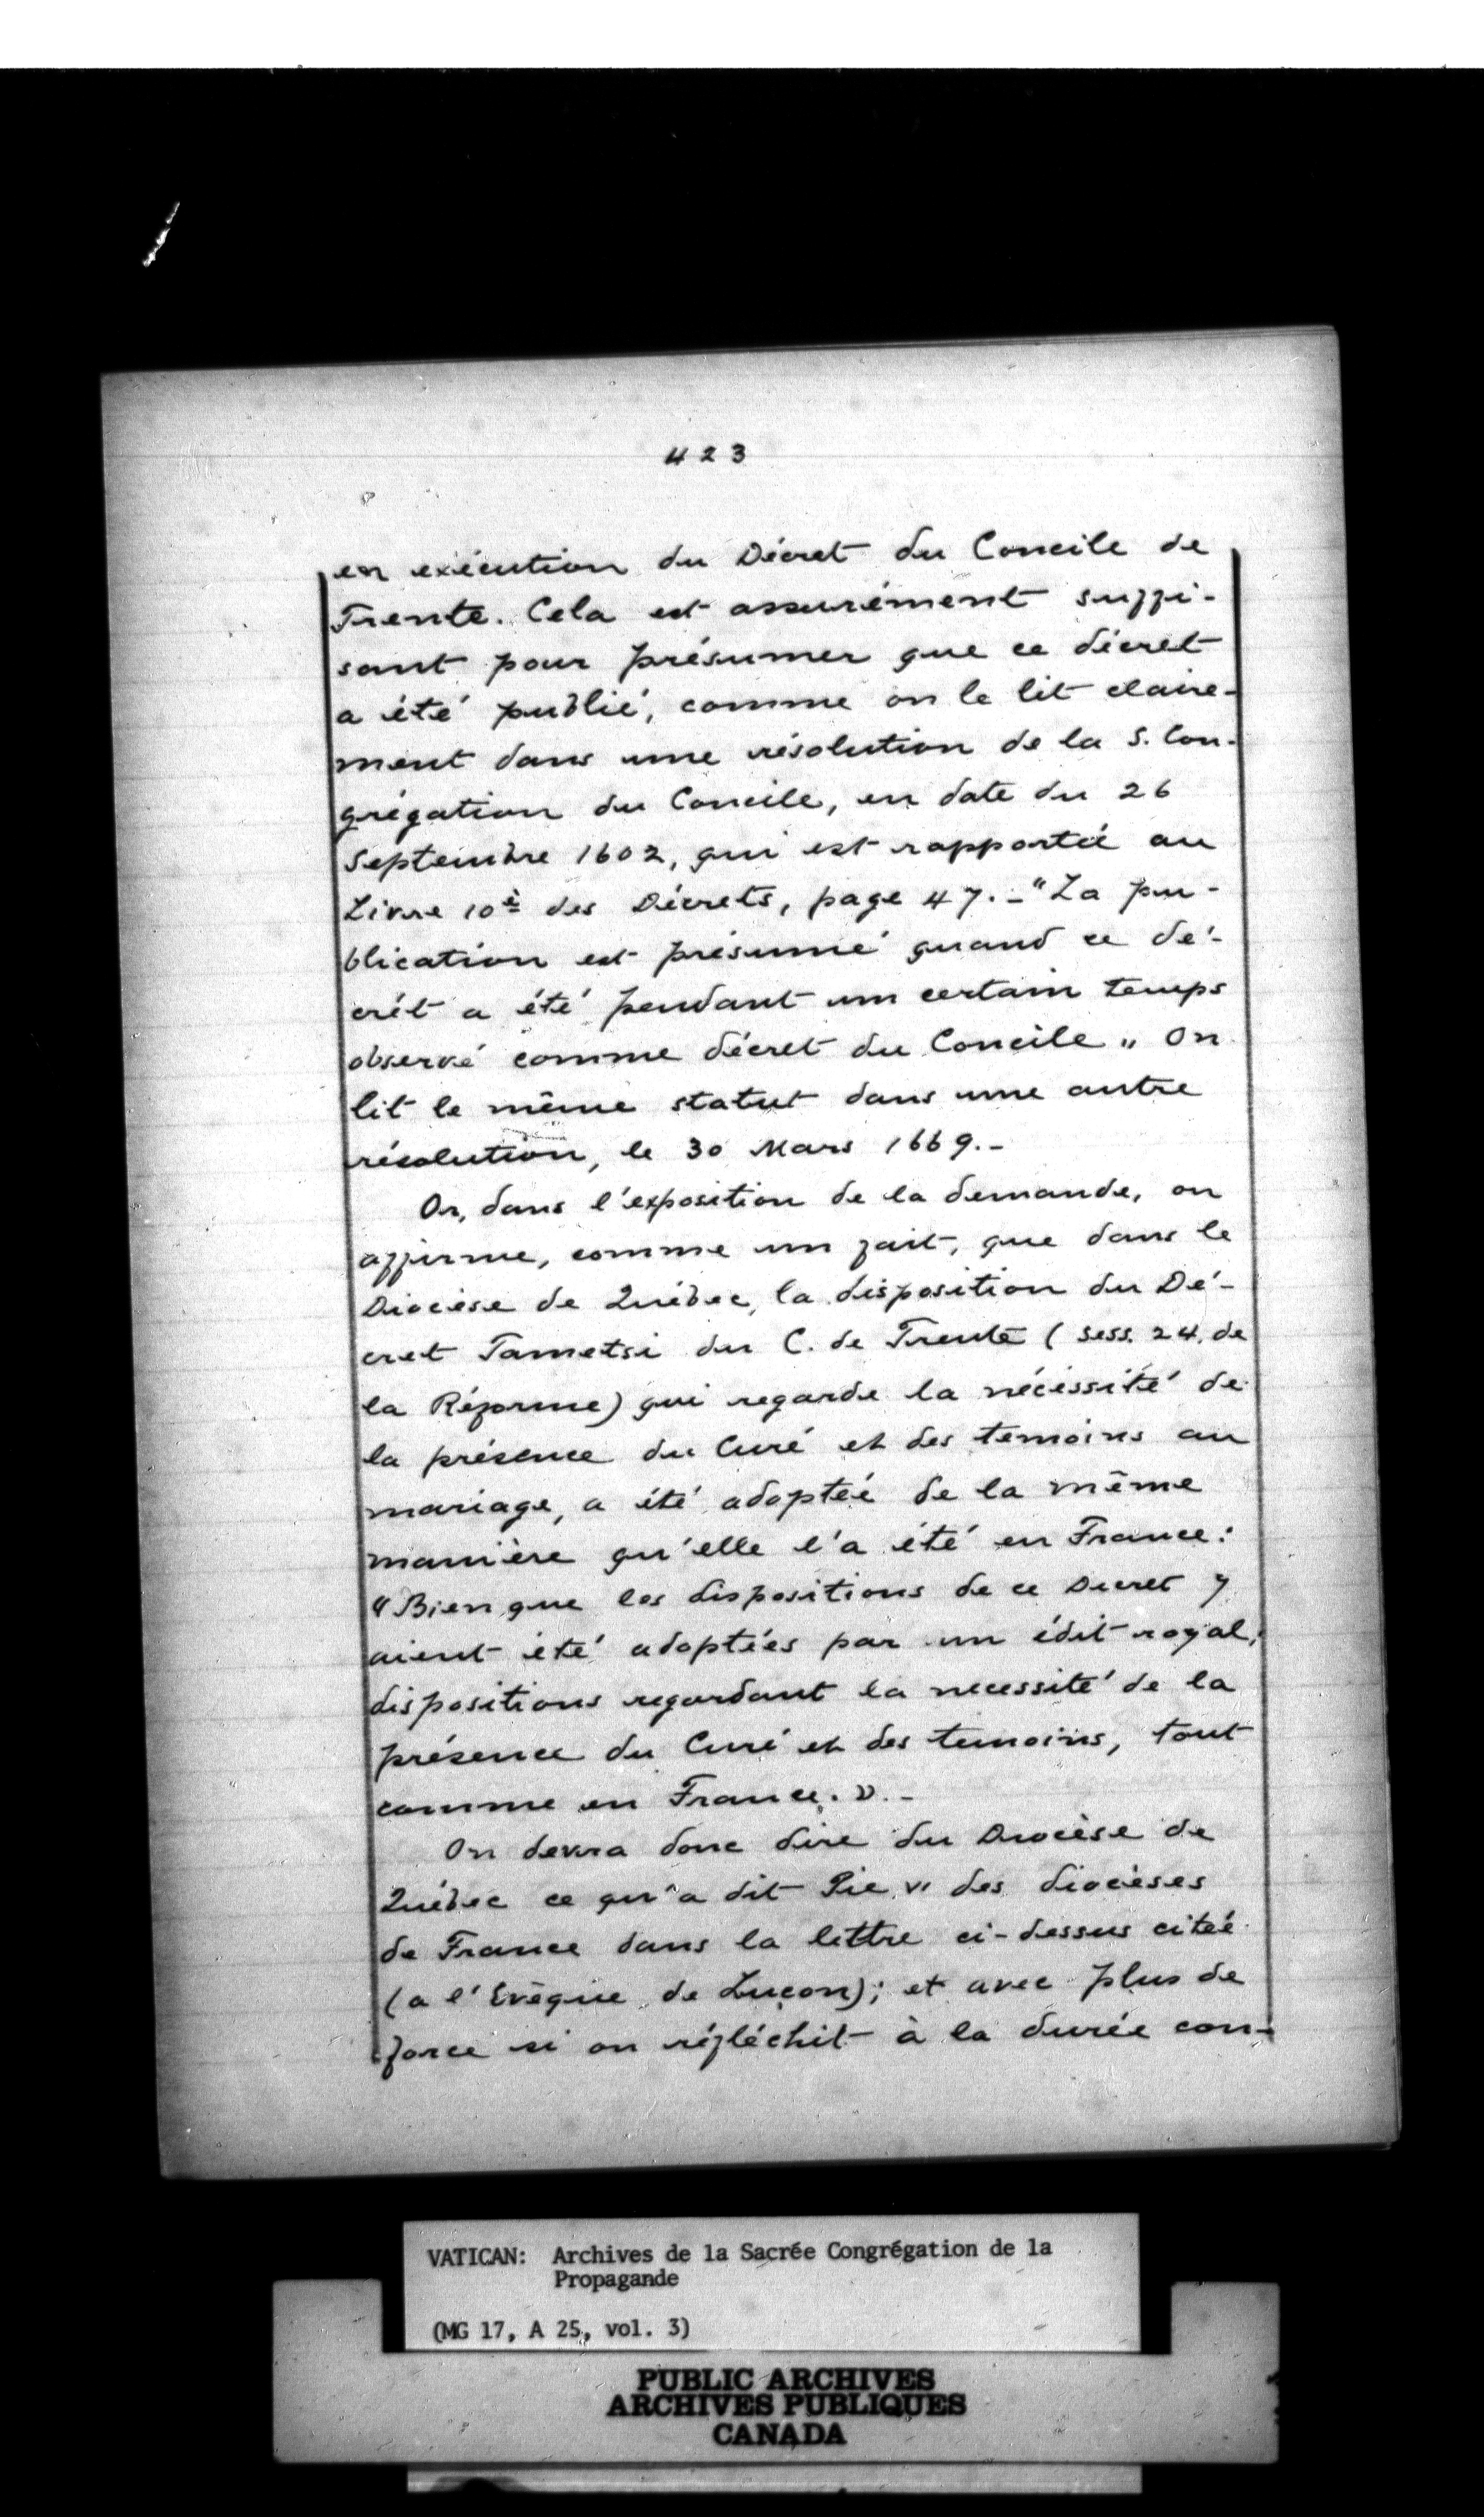 423
en exécution du Décret du Concile de
Trente. Cela est assurément suffi-
sant pour présumer que ce décret
a été publié, comme on le lit claire-
ment dans une résolution de la S. Con-
grégation du Concile, en date du 26
Septembre 1602, qui est rapportée au
Livre 10è des Décrets, page 47. - "La pu-
blication est présumé quand ce dé-
crét a été pendant un certain temps
observé comme décret du Concile „ On
lit le même statut dans une autre
résolution, le 30 Mars 1669. -
Or, dans l'exposition de la demande, on
affirme, comme un fait, que dans le
Diocèse de Québec, la disposition du Dé-
cret Tametsi du C. de Trente (sess. 24. de
la Réforme) qui regarde la nécessité de
la présence du Curé et des temoins au
mariage, a été adoptée de la même
manière qu'elle l'a été en France:
"Bien que les dispositions de ce Decret y
aient été adoptées par un édit royal,
dispositions regardant la necessité de la
présence du Curé et des temoins, tout
comme en France. ». -
On devra donc dire du Diocèse de
Québec ce qu'a dit Pie VI des diocèses
de France dans la lettre ci-dessus citée
(a l'Evêque de Luçon); et avec plus de
force si on réfléchit à la durée con-
VATICAN: Archives de la Sacrée Congrégation de la
Propagande
(MG 17, A 25, vol. 3)
PUBLIC ARCHIVES
ARCHIVES PUBLIQUES
CANADA